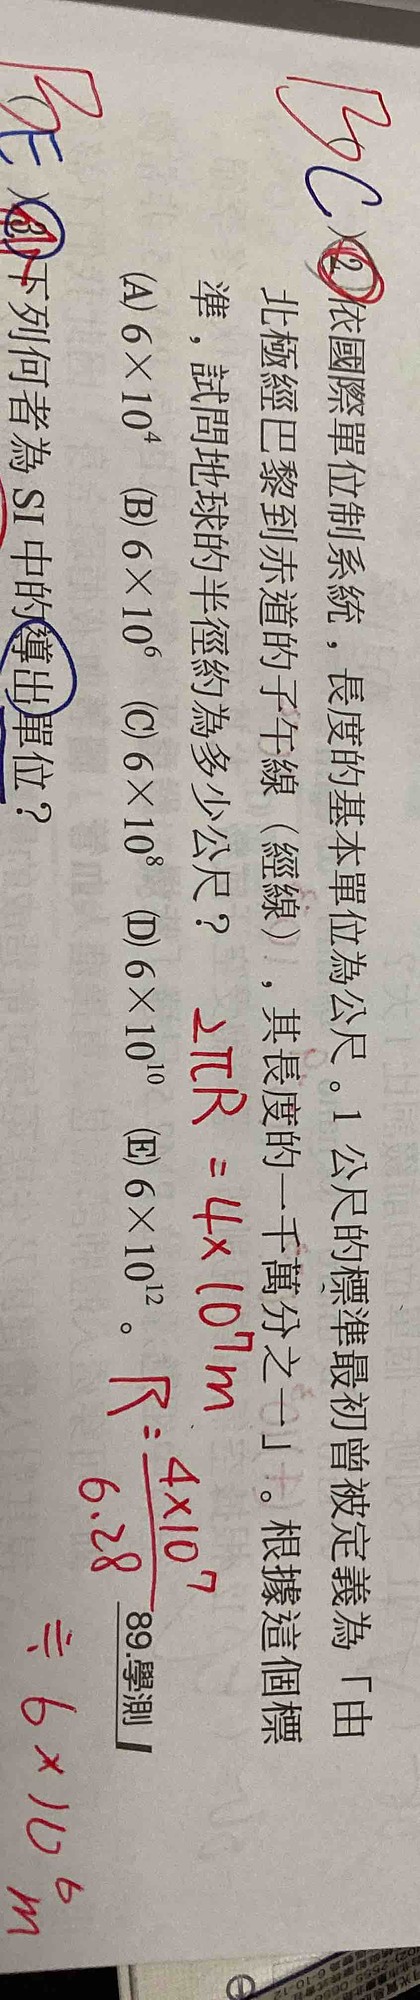 B
C )2.依國際單位制系統，長度的基本單位為公尺。1 公尺的標準最初曾被定義為「由
北極經巴黎到赤道的子午線（經線），其長度的一千萬分之一」。根據這個標
準，試問地球的半徑約為多少公尺？ 2πR = 4×10⁷m
(A) 6×10⁴ (B) 6×10⁶ (C) 6×10⁸ (D) 6×10¹⁰ (E) 6×10¹² 。 R = 4×10⁷ / 6.28
89.學測
≒ 6×10⁶ m
B
E )3.下列何者為 SI 中的導出單位？